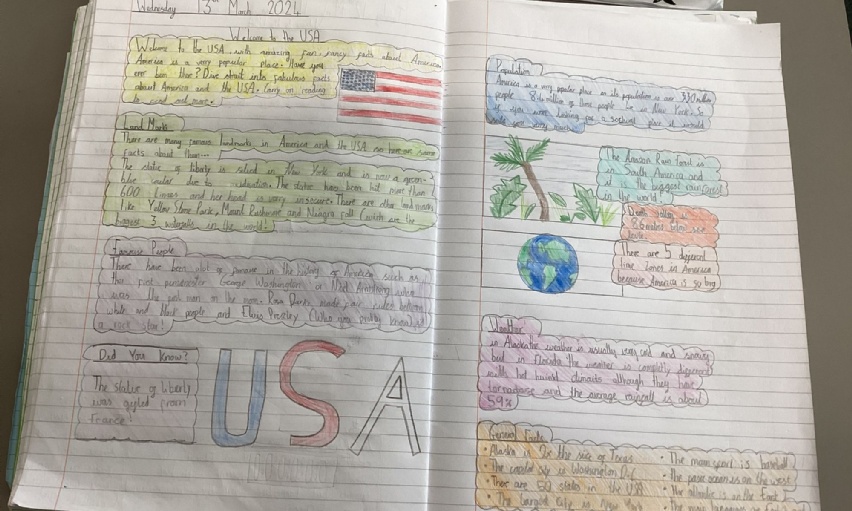 Wednesday 13 March 2024
Welcome to the USA
Welcome to the USA with amazing fun fancy facts about America.
America is a very popular place. Have you
ever been there? Dive into fabulous facts
about America and the USA. Carry on reading
to find out more.
Land Marks
There are many famous landmarks in America and the USA are some
facts about them
The statue of liberty is in New York and is now a green-
blue colour due to The statue has been hit more than
600 times and her head is very insecure. There are other
like Yellow Stone Park, Mount Rushmore and Niagra fall (wich are the
biggest 3 waterfalls in the world!
Famous People
There have been alot of famous in the history of America such as
the first George Washington or Neil Armstrong who
was the first man on the moon. Rosa Parks made fair rules between
white and black people and Elvis Presley (Who was pretty know
a rock star!
Did You Know?
The statue of liberty
was gifted from
France!
USA
Population
America is a very popular place in its population is over 330 million
people. 8.6 million of those people live in New York. So
if you were looking for a place it would
The Amazon Rain forest is
in South America and
is the biggest rainforest
in the world!
Death valley is
86 below sea
levels.
There are 5 different
time zones in America
because America is so big
Weather
in Alaska the weather is usually very cold and snowy
but in Florida the weather is different
with hot humid climate although they have
tornadoes and the average rainfall is about
59%
General Facts
• Alaska is 2x the size of Texas
• The capital is Washington D.C
• There are 50 states in the USA
• The largest is New York
• The main sport is baseball
• The ocean is on the west
• The atlantic is on the East